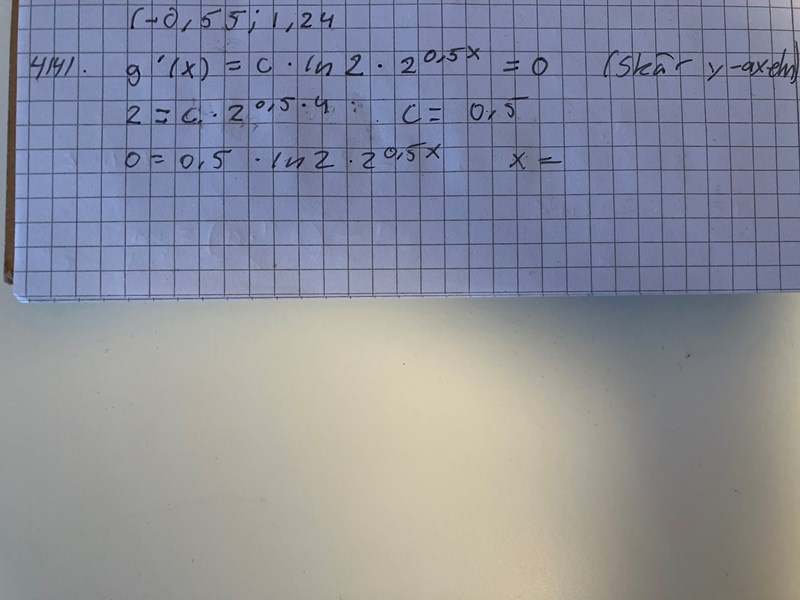 (-0,55; 1,24
4141. g'(x) = C · ln 2 · 2^0,5x = 0 (Skär y-axeln)
2 = C · 2^0,5·4 : C = 0,5
0 = 0,5 · ln 2 · 2^0,5x x =